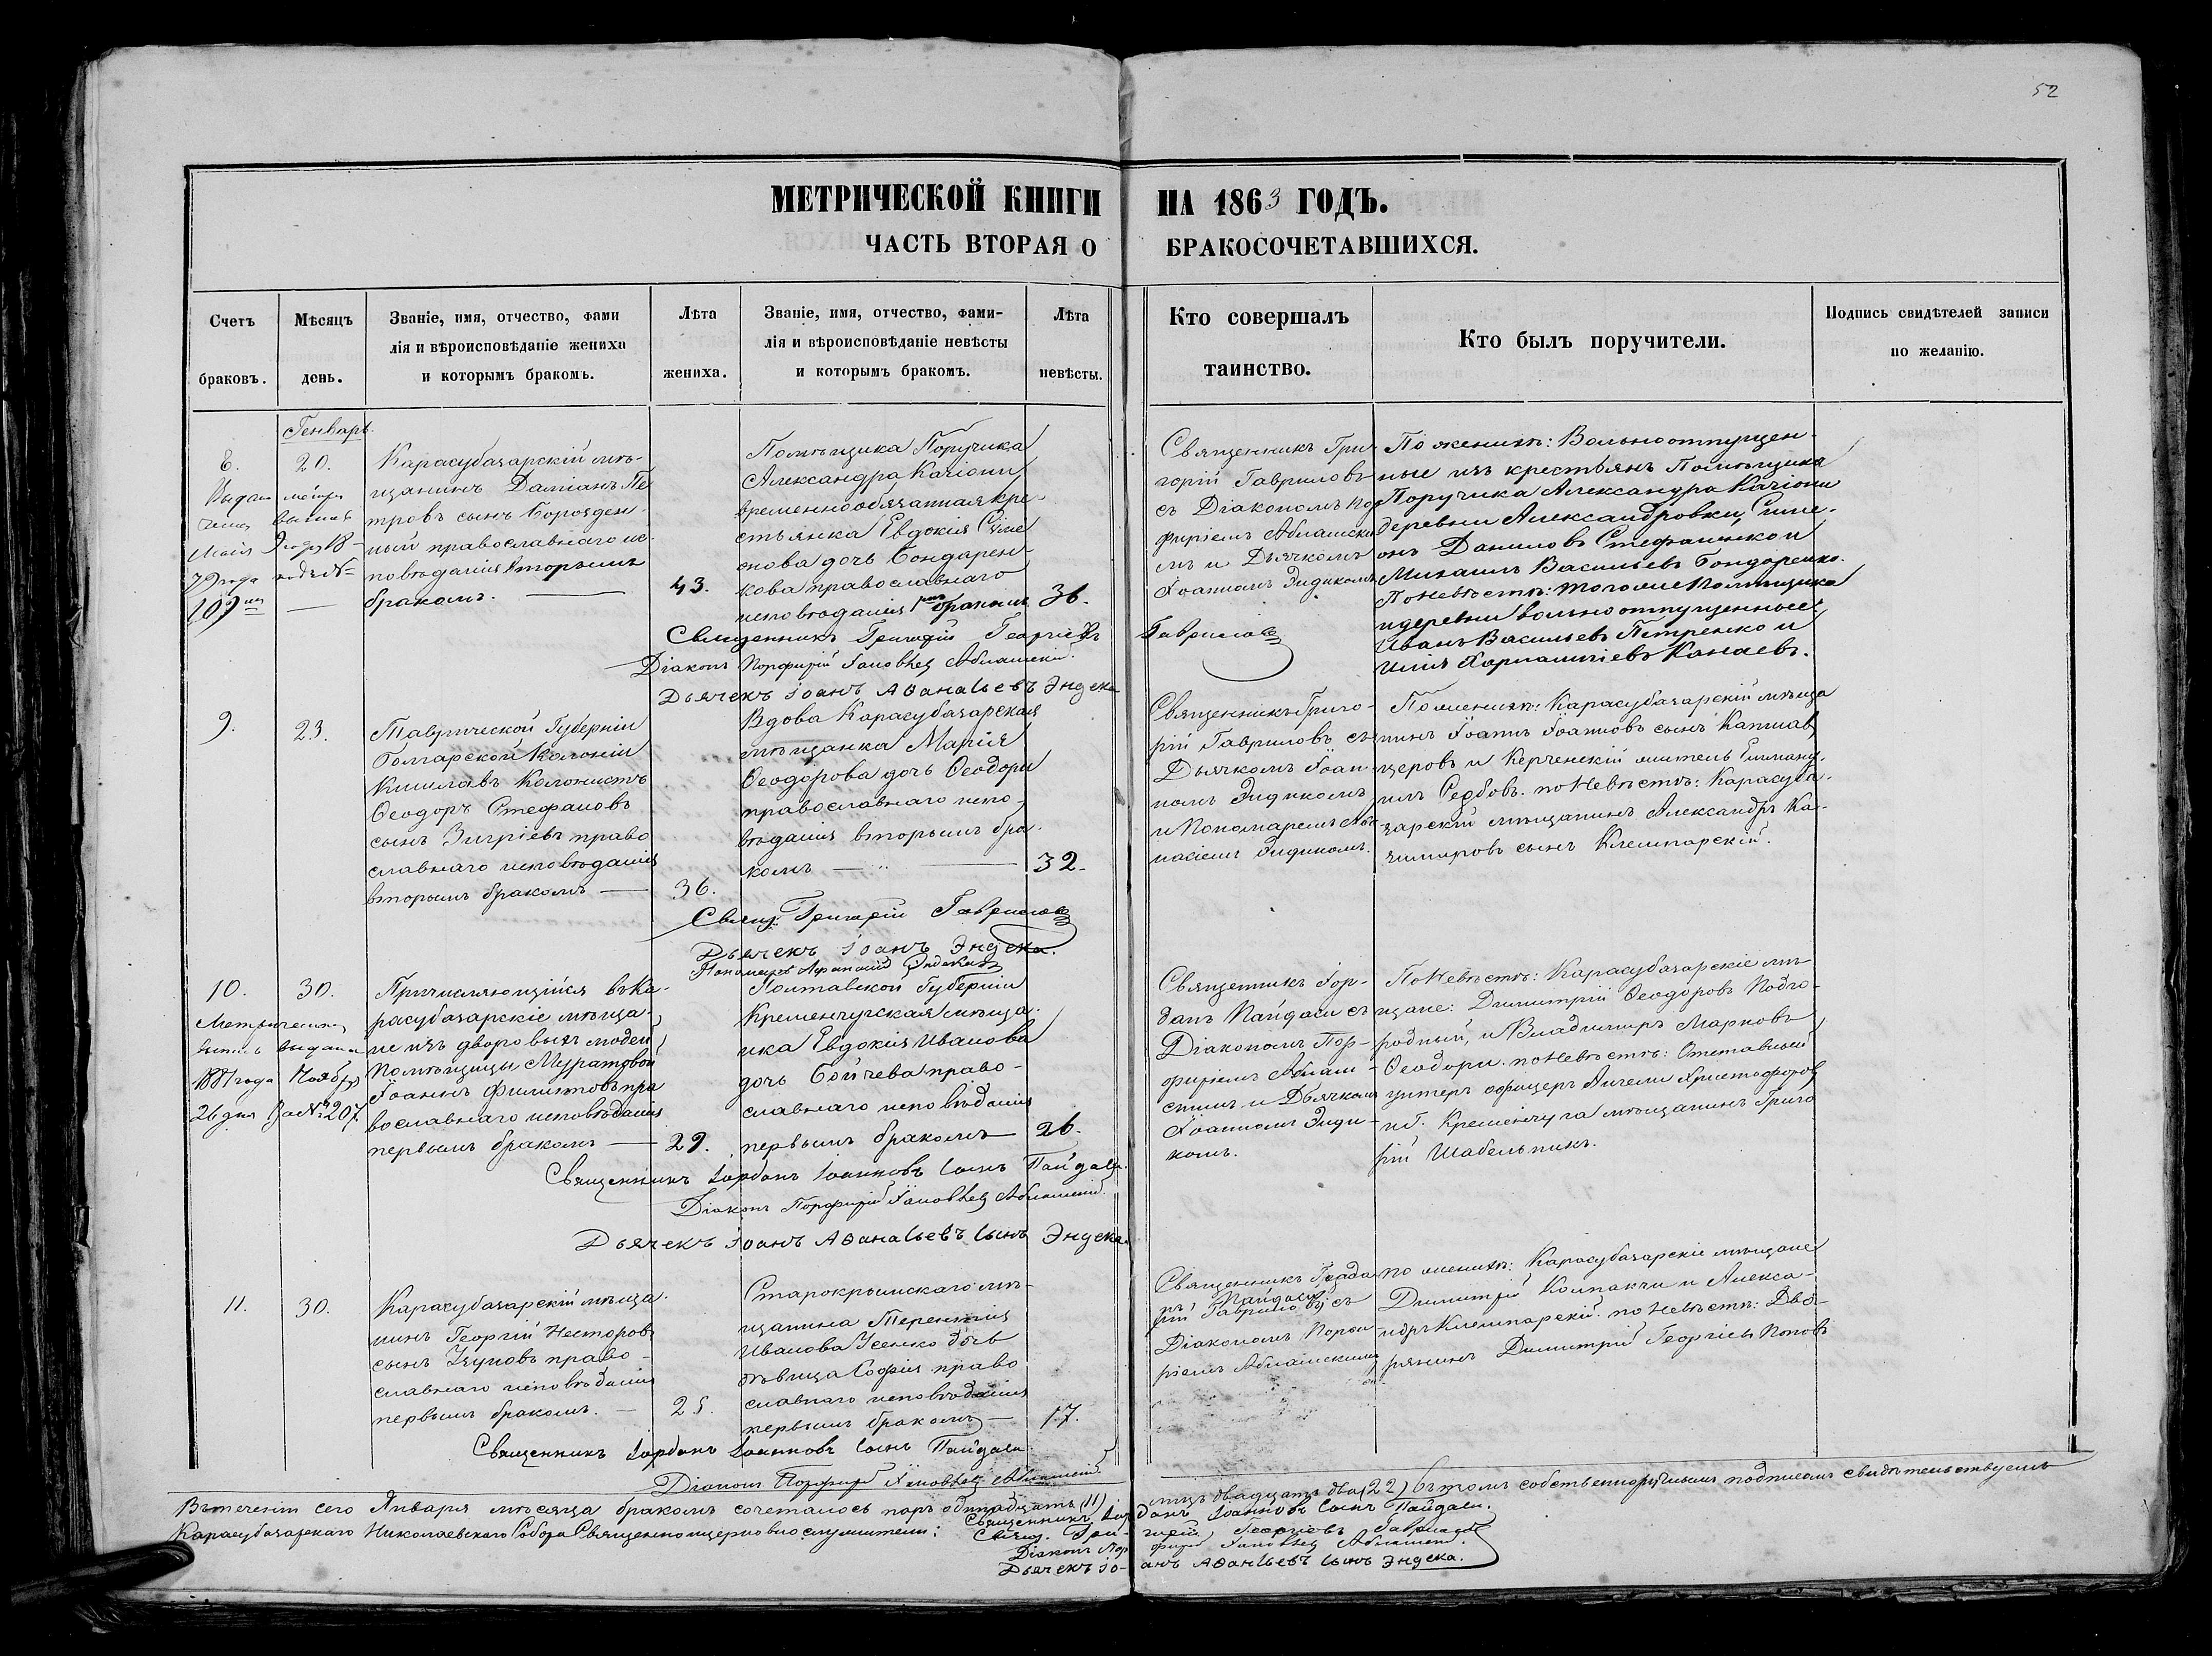 52
МЕТРИЧЕСКОЙ КНИГИ НА 1863 ГОДЪ.
ЧАСТЬ ВТОРАЯ О БРАКОСОЧЕТАВШИХСЯ.
Счетъ браковъ.
Мѣсяцъ день.
Званіе, имя, отчество, фами
лія и вѣроисповѣданіе жениха
и которымъ бракомъ.
Лѣта жениха.
Званіе, имя, отчество, фами-
лія и вѣроисповѣданіе невѣсты
и которымъ бракомъ.
Лѣта невѣсты.
Кто совершалъ
таинство.
Кто былъ поручители.
Подпись свидѣтелей записи
по желанію.
Генварь.
20.
Карасубазарскій мѣ-
щанинъ Даміанъ Пе
тровъ сынъ Борозден
ный православнаго ис
повѣданія вторымъ
бракомъ.
43.
Помѣщика Поручика
Александра Качіони
временнообязанная кре
стьянка Евдокія Симе
онова дочь Бондарен
кова православнаго
исповѣданія 1мъ бракомъ
36.
Священникъ Гри-
горій Гавриловъ
съ Діакономъ Пор
фиріемъ
мъ и Дьячкомъ
Іоанномъ
По женихѣ: Вольноотпущен-
ные изъ крестьянъ Помѣщика
Поручика Александра Качіони
деревни Александровки, Симе-
онъ Даниловъ Стефаненко и
Михаилъ Васильевъ Бондаренко.
По невѣстѣ: того же Помѣщика
и деревни вольноотпущенные
Иванъ Васильевъ Петренко и
Канаевъ.
Священникъ Григорій
Діаконъ Порфирій
Дьячекъ Іоанъ Аѳанасьевъ Эндека
9.
23.
Таврической Губерніи
Болгарской Колоніи
Кишлавъ Колонистъ
Ѳеодоръ Стефановъ
сынъ право
славнаго исповѣданія
вторымъ бракомъ
36.
Вдова Карасубазарская
мѣщанка Марія
Ѳеодорова дочь Ѳеодори
православнаго испо-
вѣданія вторымъ бра-
комъ
32.
Священникъ Григо-
рій Гавриловъ съ
Дьячкомъ Іоан-
номъ
и Пономаремъ
По женихѣ: Карасубазарскій мѣща
нинъ Іоаннъ Іоанновъ сынъ
и Керченскій житель
по Невѣстѣ: Карасуба-
зарскій мѣщанинъ Александръ
сынъ Клемпарскій.
Свящ: Григорій Гавриловъ
Дьячекъ Іоанъ Эндека.
10.
30.
Метрическая
выпись выдана
1881 года Ноября
26 дня за № 207.
Причисляющійся въ Ка-
расубазарскіе мѣща-
не изъ дворовыхъ людей
Помѣщицы Муратовой
Іоаннъ Филиповъ пра
вославнаго исповѣданія
первымъ бракомъ
29.
Полтавской Губерніи
Кременчугская мѣща-
нка Евдокія Иванова
дочь Бойчева право-
славнаго исповѣданія
первымъ бракомъ
26.
Священникъ Іор-
данъ Пайдаси съ
Діакономъ Пор-
фиріемъ
и Дьячкомъ
Іоанномъ Энди-
комъ.
По Невѣстѣ: Карасубазарскіе мѣ
щане: Димитрій Ѳеодоровъ Подго-
родный, и Владимиръ Марковъ
Ѳеодори. по Невѣстѣ: Отставный
унтеръ офицеръ Ангели Христофоров
и г. Кременчуга мѣщанинъ Григо
рій Шабельникъ.
Священникъ Іорданъ Іоанновъ сынъ Пайдаси.
Діаконъ Порфирій
Дьячекъ Іоанъ Аѳанасьевъ сынъ Эндека
11.
30.
Карасубазарскій мѣща-
нинъ Георгій Несторовъ
сынъ Узуновъ право-
славнаго исповѣданія
первымъ бракомъ.
25.
Старокрымскаго мѣ-
щанина Терентія
Иванова Усенко дочь
дѣвица Софія право
славнаго исповѣданія
первымъ бракомъ
17.
Священникъ
Пайдаси съ
Діакономъ Порфи-
ріемъ
по женихѣ: Карасубазарскіе мѣщане
Димитрій Колпакчи и Алекса-
ндръ Клемпарскій. по Невѣстѣ: Дво-
рянинъ Димитрій Георгіевъ Поповъ
Священникъ Іорданъ Іоанновъ сынъ Пайдаси.
Діаконъ Порфирій
Въ теченіи сего Января мѣсяца бракомъ сочеталось паръ одинадцать (11) лицъ двадцать два (22) въ томъ собственноручнымъ подписомъ свидѣтельствуемъ
Карасубазарскаго Николаевскаго Собора Священно церковно служители: Священникъ Іорданъ Іоанновъ сынъ Пайдаси.
Свящ. Григорій Георгіевъ Гавриловъ
Діаконъ Порфирій
Дьячекъ Іоанъ Аѳанасьевъ сынъ Эндека.